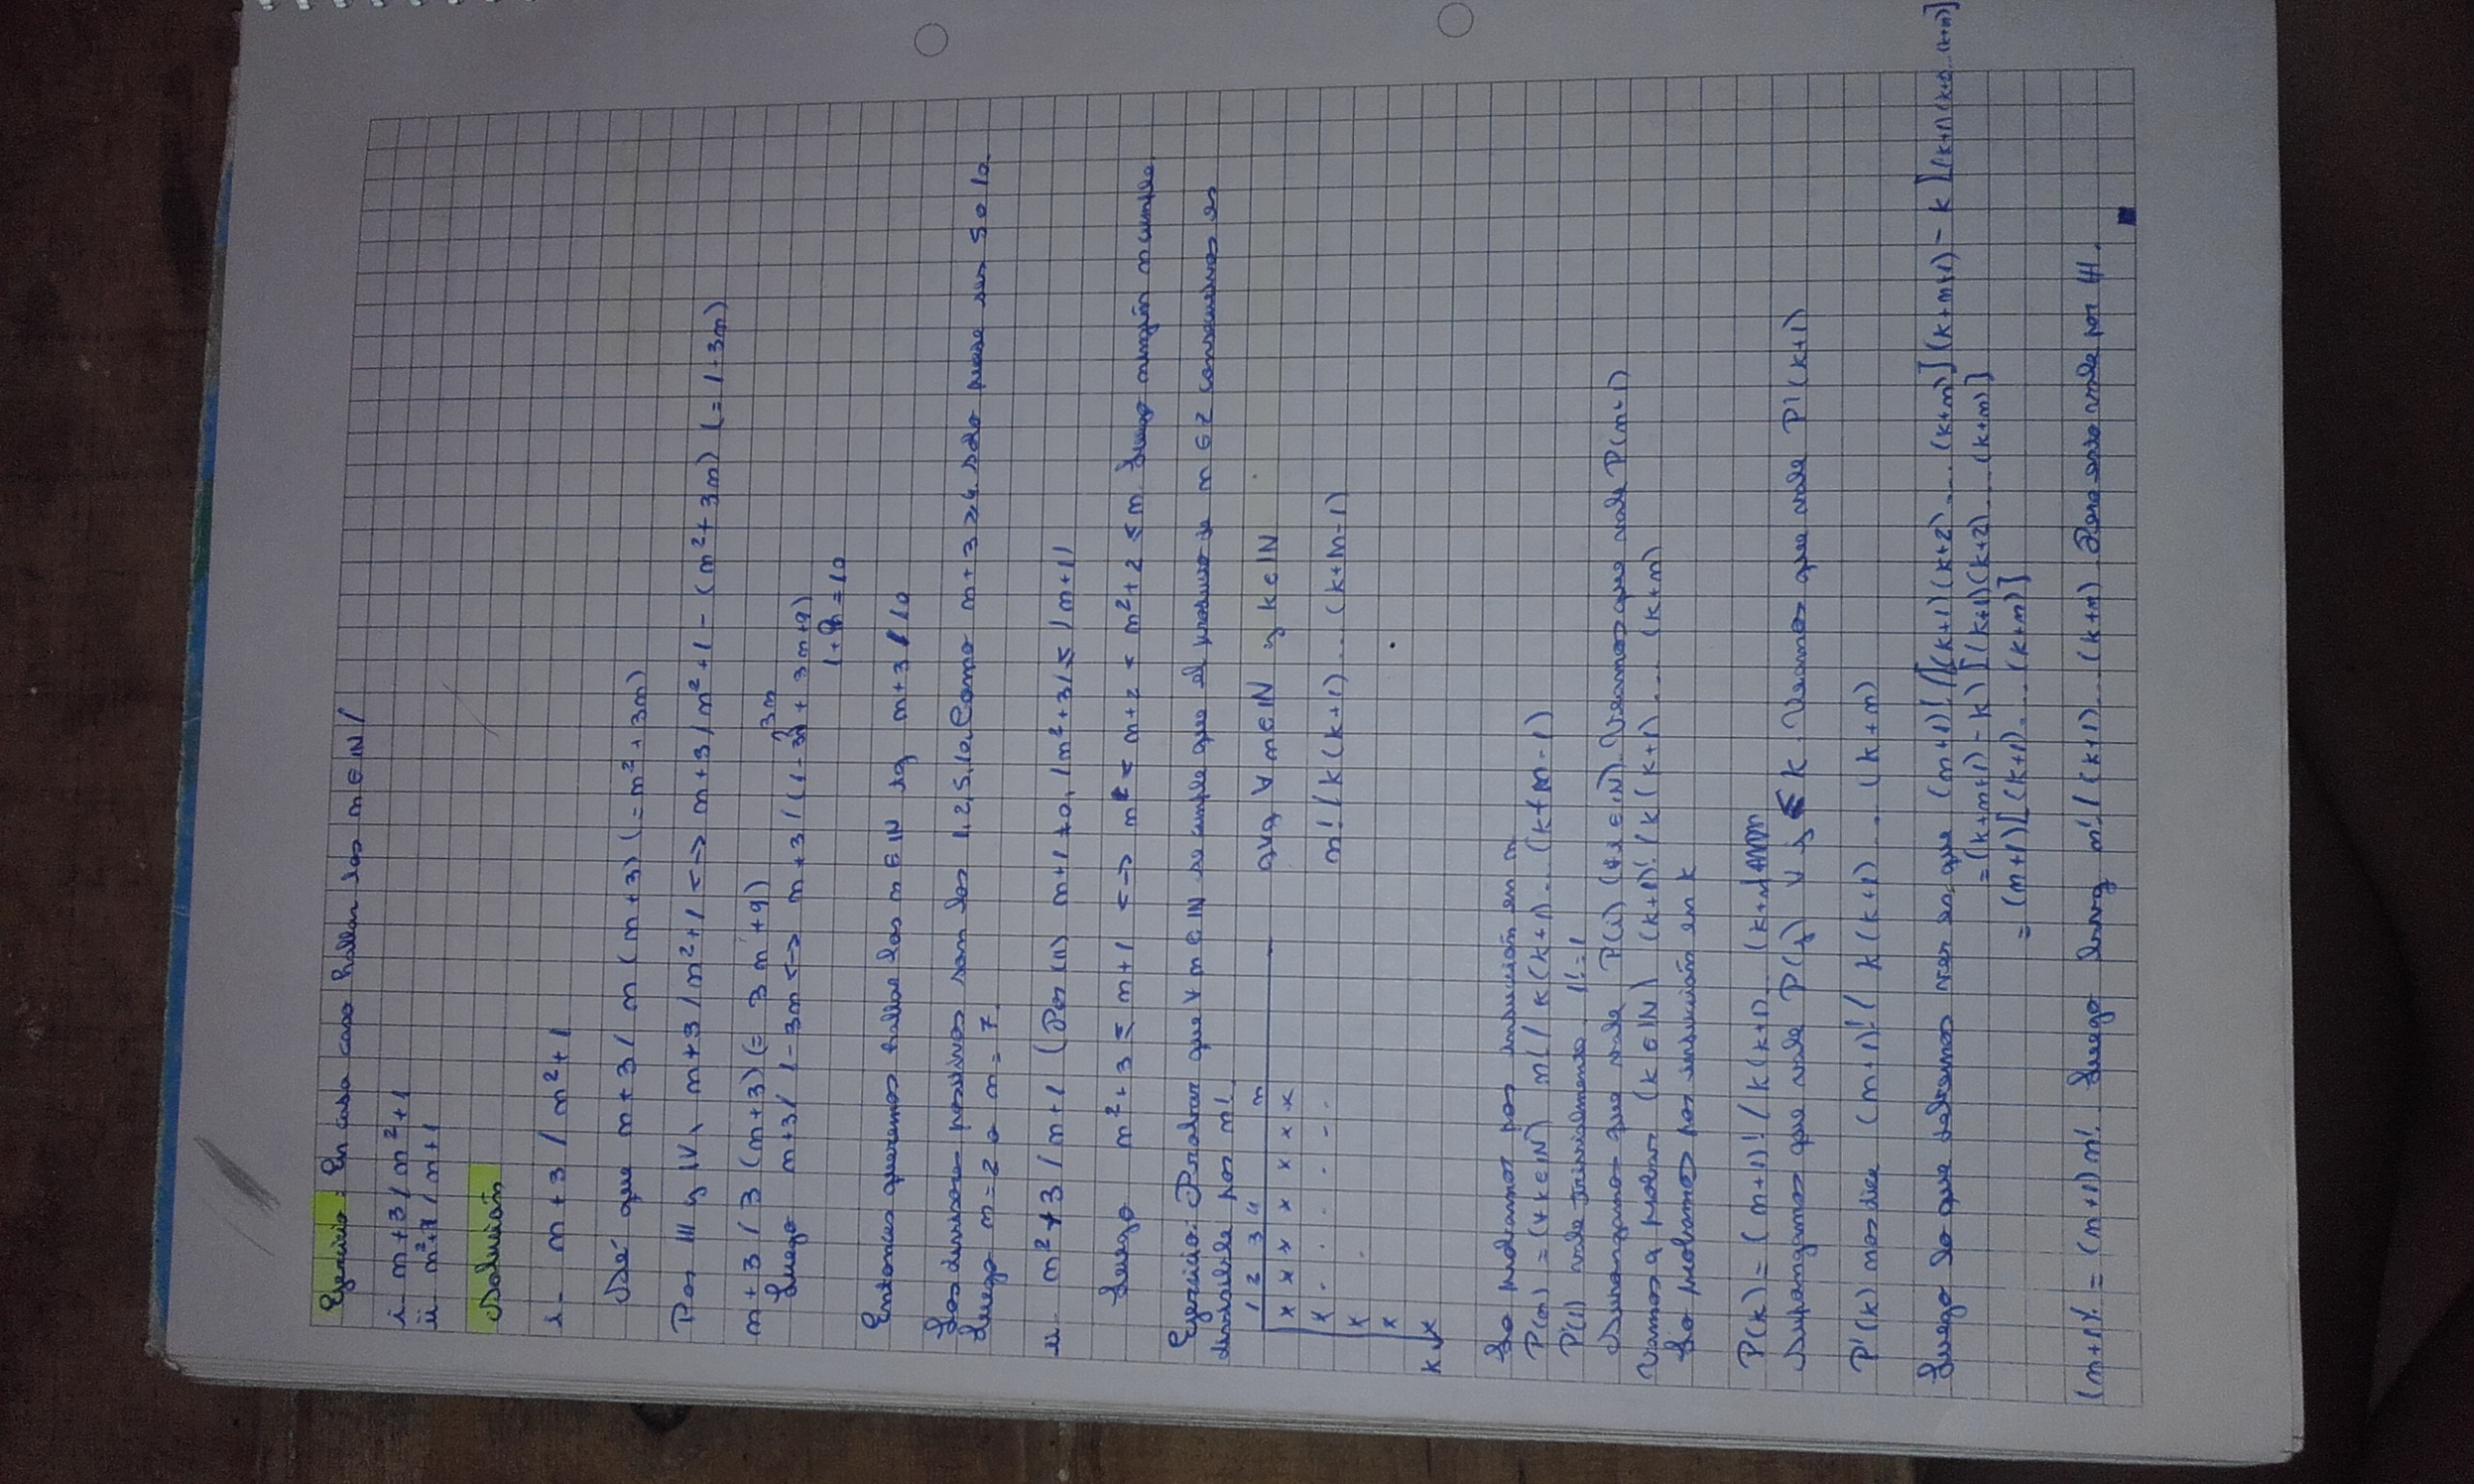 Ejercicio: En cada caso hallar los n ∈ ℕ /
i- n+3 / n²+1
ii- n²+1 / n+1
Solución
i- n+3 / n²+1
Sé que n+3 / n (n+3) (= n²+3n)
Por III y IV, n+3 / n²+1 <-> n+3 / n²+1 - (n²+3n) (= 1-3n)
n+3 / 3 (n+3) (= 3n+9)
3n
Luego n+3 / 1-3n <-> n+3 / (1-3n + 3n+9)
1+9 = 10
Entonces queremos hallar los n ∈ ℕ tq n+3 / 10
Los divisores positivos son los 1, 2, 5, 10. Como n+3 ≥ 4 solo puede ser 5 o 10.
Luego n=2 o n=7.
ii- n²+3 / n+1 (Por (II) n+1 ≠ 0, |n²+3| ≤ |n+1|
Luego n²+3 ≤ n+1 <-> n² < n+2 < n²+2 ≤ n. Luego ningún n cumple
Ejercicio: Probar que ∀ n ∈ ℕ se cumple que el producto de n ∈ ℤ consecutivos es
divisible por n!
1 2 3 4 n
x x x x x x x
qvq ∀ n ∈ ℕ y k ∈ ℕ
x - . . - . - -
n! / k (k+1) ... (k+n-1)
x .
x
k x
Lo probamos por inducción en n
P(n) = (∀ k ∈ ℕ) n! / k (k+1) ... (k+n-1)
P(1) vale trivialmente. 1! = 1
Supongamos que vale P(i) (∀ i ∈ ℕ). Veamos que vale P(n+1)
Vamos a probar (k ∈ ℕ) (k+1)! / k (k+1) ... (k+n)
Lo probamos por inducción en k
P(k) = (n+1)! / k (k+1) ... (k+n)
Supongamos que vale P(j) ∀ j ≤ k. Veamos que vale P'(k+1)
P'(k) nos dice (n+1)! / k (k+1) ... (k+n)
Luego lo que debemos ver es que (n+1)! / [(k+1)(k+2) ... (k+n)] (k+n+1) - k [(k+1)(k+2)...(k+n)]
= (k+n+1) - k) [(k+1)(k+2) ... (k+n)]
= (n+1) [(k+1) ... (k+n)]
(n+1)! = (n+1) n! Luego n! / (k+1) ... (k+n) Pero esto vale por HI.